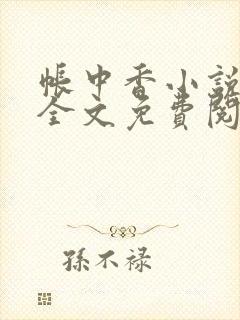 帳中香小說
全文免費閱
孫不祿